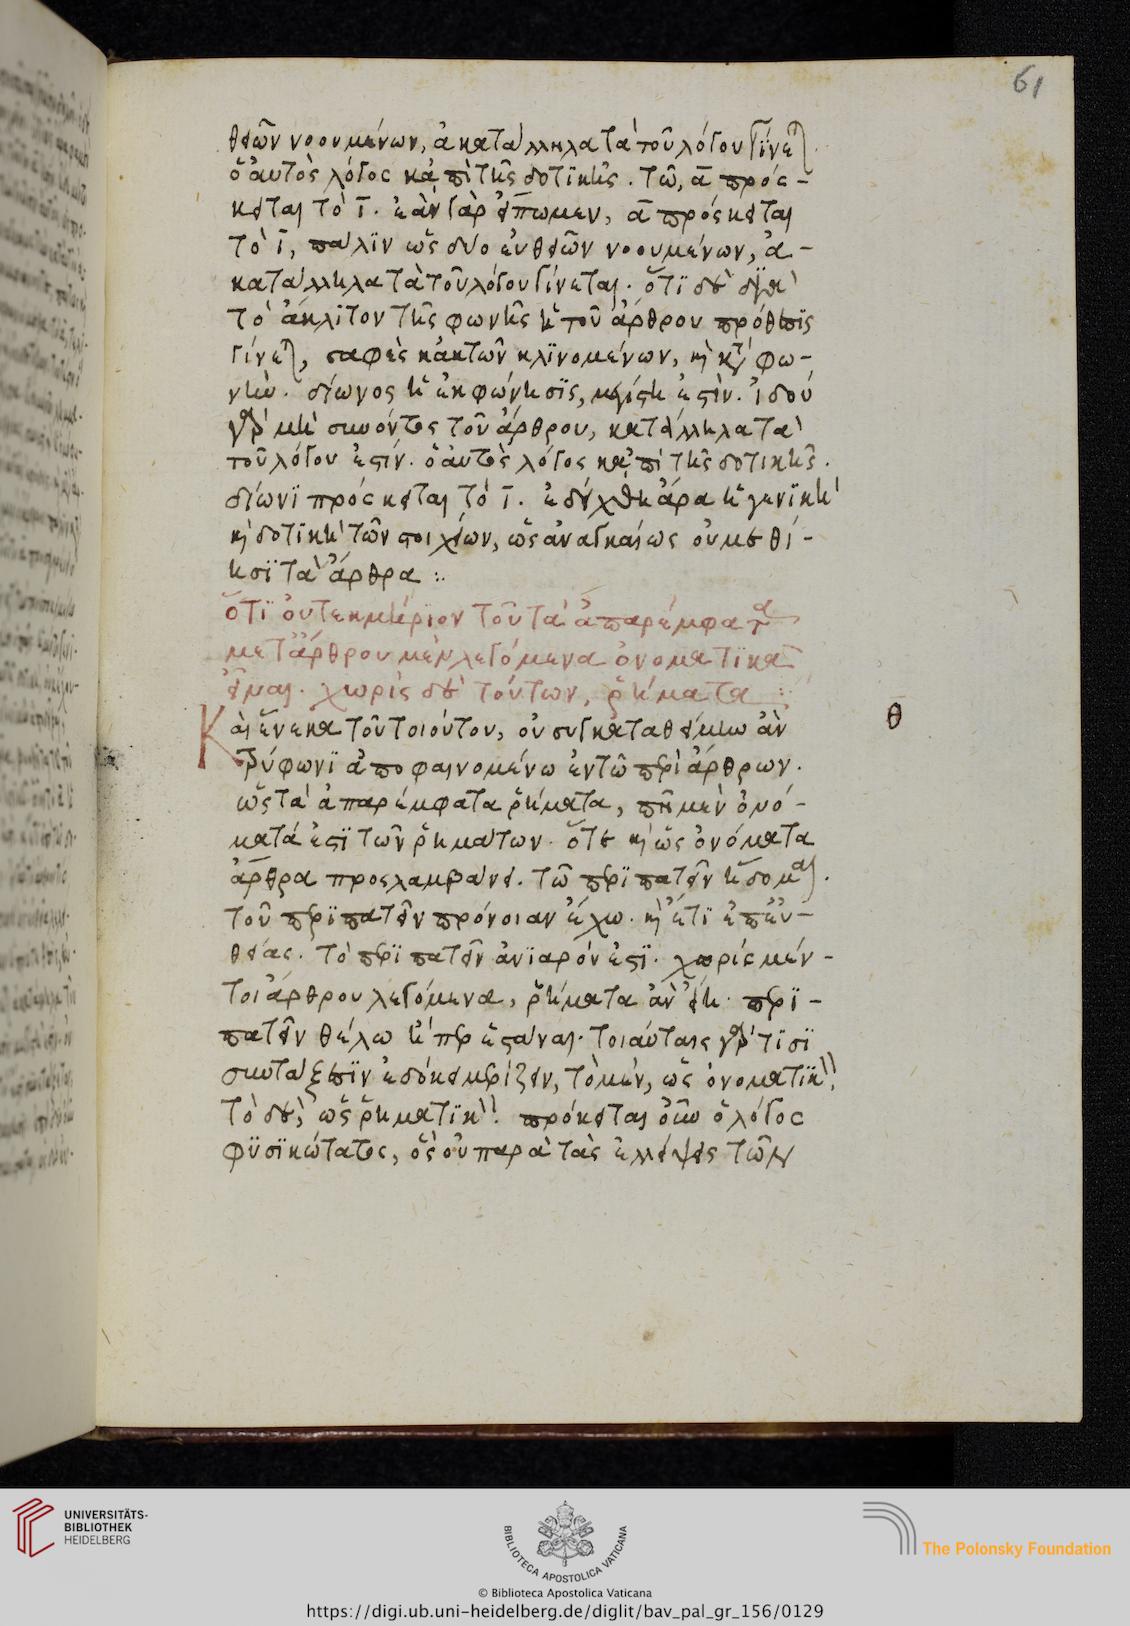 61
θειῶν νοουμένων, ἀκατάλληλα τὰ τοῦ λόγου γίνεται.
ὁ αὐτὸς λόγος κἀπὶ τῆς δοτικῆς. τῶ, ᾱ πρόσ-
κειται τὸ ῑ. ἐὰν γὰρ εἴπωμεν, ᾱ πρόσκειται
τὸ ῑ, πάλϊν ὡς δύο εὐθειῶν νοουμένων, ἀ-
κατάλληλα τὰ τοῦ λόγου γίνεται. ὅτϊ δὲ διὰ
τὸ ἄκλϊτον τῆς φωνῆς ἡ τοῦ ἄρθρου πρόθεσϊς
γίνεται, σαφὲς κἀκ τῶν κλϊνομένων, κατὰ φω-
νήν. δίωνος ἡ ἐκφώνησϊς, ἐστὶν. ἰδού
γὰρ μὴ συνόντος τοῦ ἄρθρου, κατάλληλα τὰ
τοῦ λόγου ἐστίν. ὁ αὐτὸς λόγος κἀπὶ τῆς δοτικῆς.
δίωνϊ πρόσκειται τὸ ῑ. ἐδείχθη ἄρα ἡ γενϊκὴ
καὶ δοτϊκὴ τῶν στοιχείων, ὡς ἀναγκαίως οὐκ ἀθετή-
ησϊ τὰ ἄρθρα :.
ὅτϊ οὐ τεκμήρϊον τοῦ τὰ ἀπαρέμφατα
μετ' ἄρθρου μὲν λεγόμενα ὀνοματϊκὰ
εἶναι. χωρὶς δὲ τούτων, ῥήματα :.
Καὶ ἕνεκα τοῦ τοιούτου, οὐ συγκαταθείμην ἂν
τρύφωνϊ ἀποφαινομένω ἐν τῶ περὶ ἄρθρων.
ὡς τὰ ἀπαρέμφατα ῥήματα, πῆ μὲν ὀνό-
ματά ἐστϊ τῶν ῥημάτων. ὅτε καὶ ὡς ὀνόματα
ἄρθρα προσλαμβάνει. τῶ περϊπατεῖν ἥδομαι.
τοῦ περϊπατεῖν πρόνοιαν ἔχω. καὶ ἔτϊ ἐπ' εὐ-
θείας. τὸ περϊπατεῖν ἀνϊαρόν ἐστϊ. χωρίς μέν-
τοι ἄρθρου λεγόμενα, ῥήματα ἂν εἴη. περϊ-
πατεῖν θέλω ἤπερ ἑστάναι. τοιαύταις γὰρ τϊσϊ
συντάξεσϊν ἐδόκει μερίζειν, τὸ μέν, ὡς ὀνοματϊκὸν,
τὸ δὲ, ὡς ῥηματϊκὸν. πρόκειται οὖν ὁ λόγος
φϋσϊκώτατος, ὃς οὐ παρὰ τὰς ἐλλείψεις τῶν
θ
UNIVERSITÄTS-
BIBLIOTHEK
HEIDELBERG
BIBLIOTECA APOSTOLICA VATICANA
The Polonsky Foundation
© Biblioteca Apostolica Vaticana
https://digi.ub.uni-heidelberg.de/diglit/bav_pal_gr_156/0129